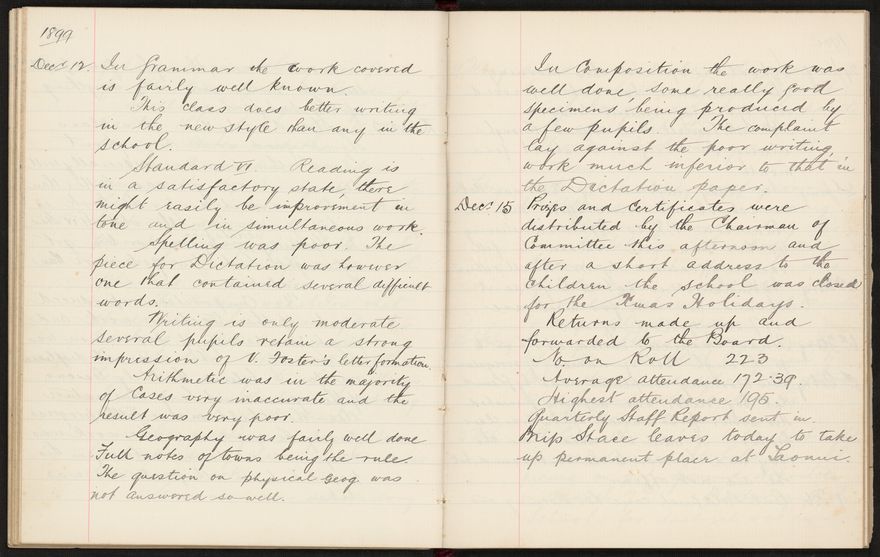 1899
Dec. 12. In Grammar the work covered
is fairly well known.
This class does better writing
in the new style than any in the
school.
Standard VI. Reading is
in a satisfactory state, there
might easily be improvement in
tone and in simultaneous work.
Spelling was poor. The
piece for Dictation was however
one that contained several difficult
words.
Writing is only moderate
several pupils retain a strong
impression of V. Foster's letter formation.
Arithmetic was in the majority
of cases very inaccurate and the
result was very poor.
Geography was fairly well done
Full notes of towns being the rule.
The question on physical geog. was
not answered so well.
In Composition the work was
well done some really good
specimens being produced by
a few pupils. The complaint
lay against the poor writing,
work much inferior to that in
the Dictation paper.
Dec. 15 Prizes and Certificates were
distributed by the Chairman of
Committee this afternoon and
after a short address to the
children the school was closed
for the Xmas Holidays.
Returns made up and
forwarded to the Board.
No. on Roll 223
Average attendance 172.39.
Highest attendance 196.
Quarterly Staff Report sent in
Miss Stace leaves today to take
up permanent place at Taonui.